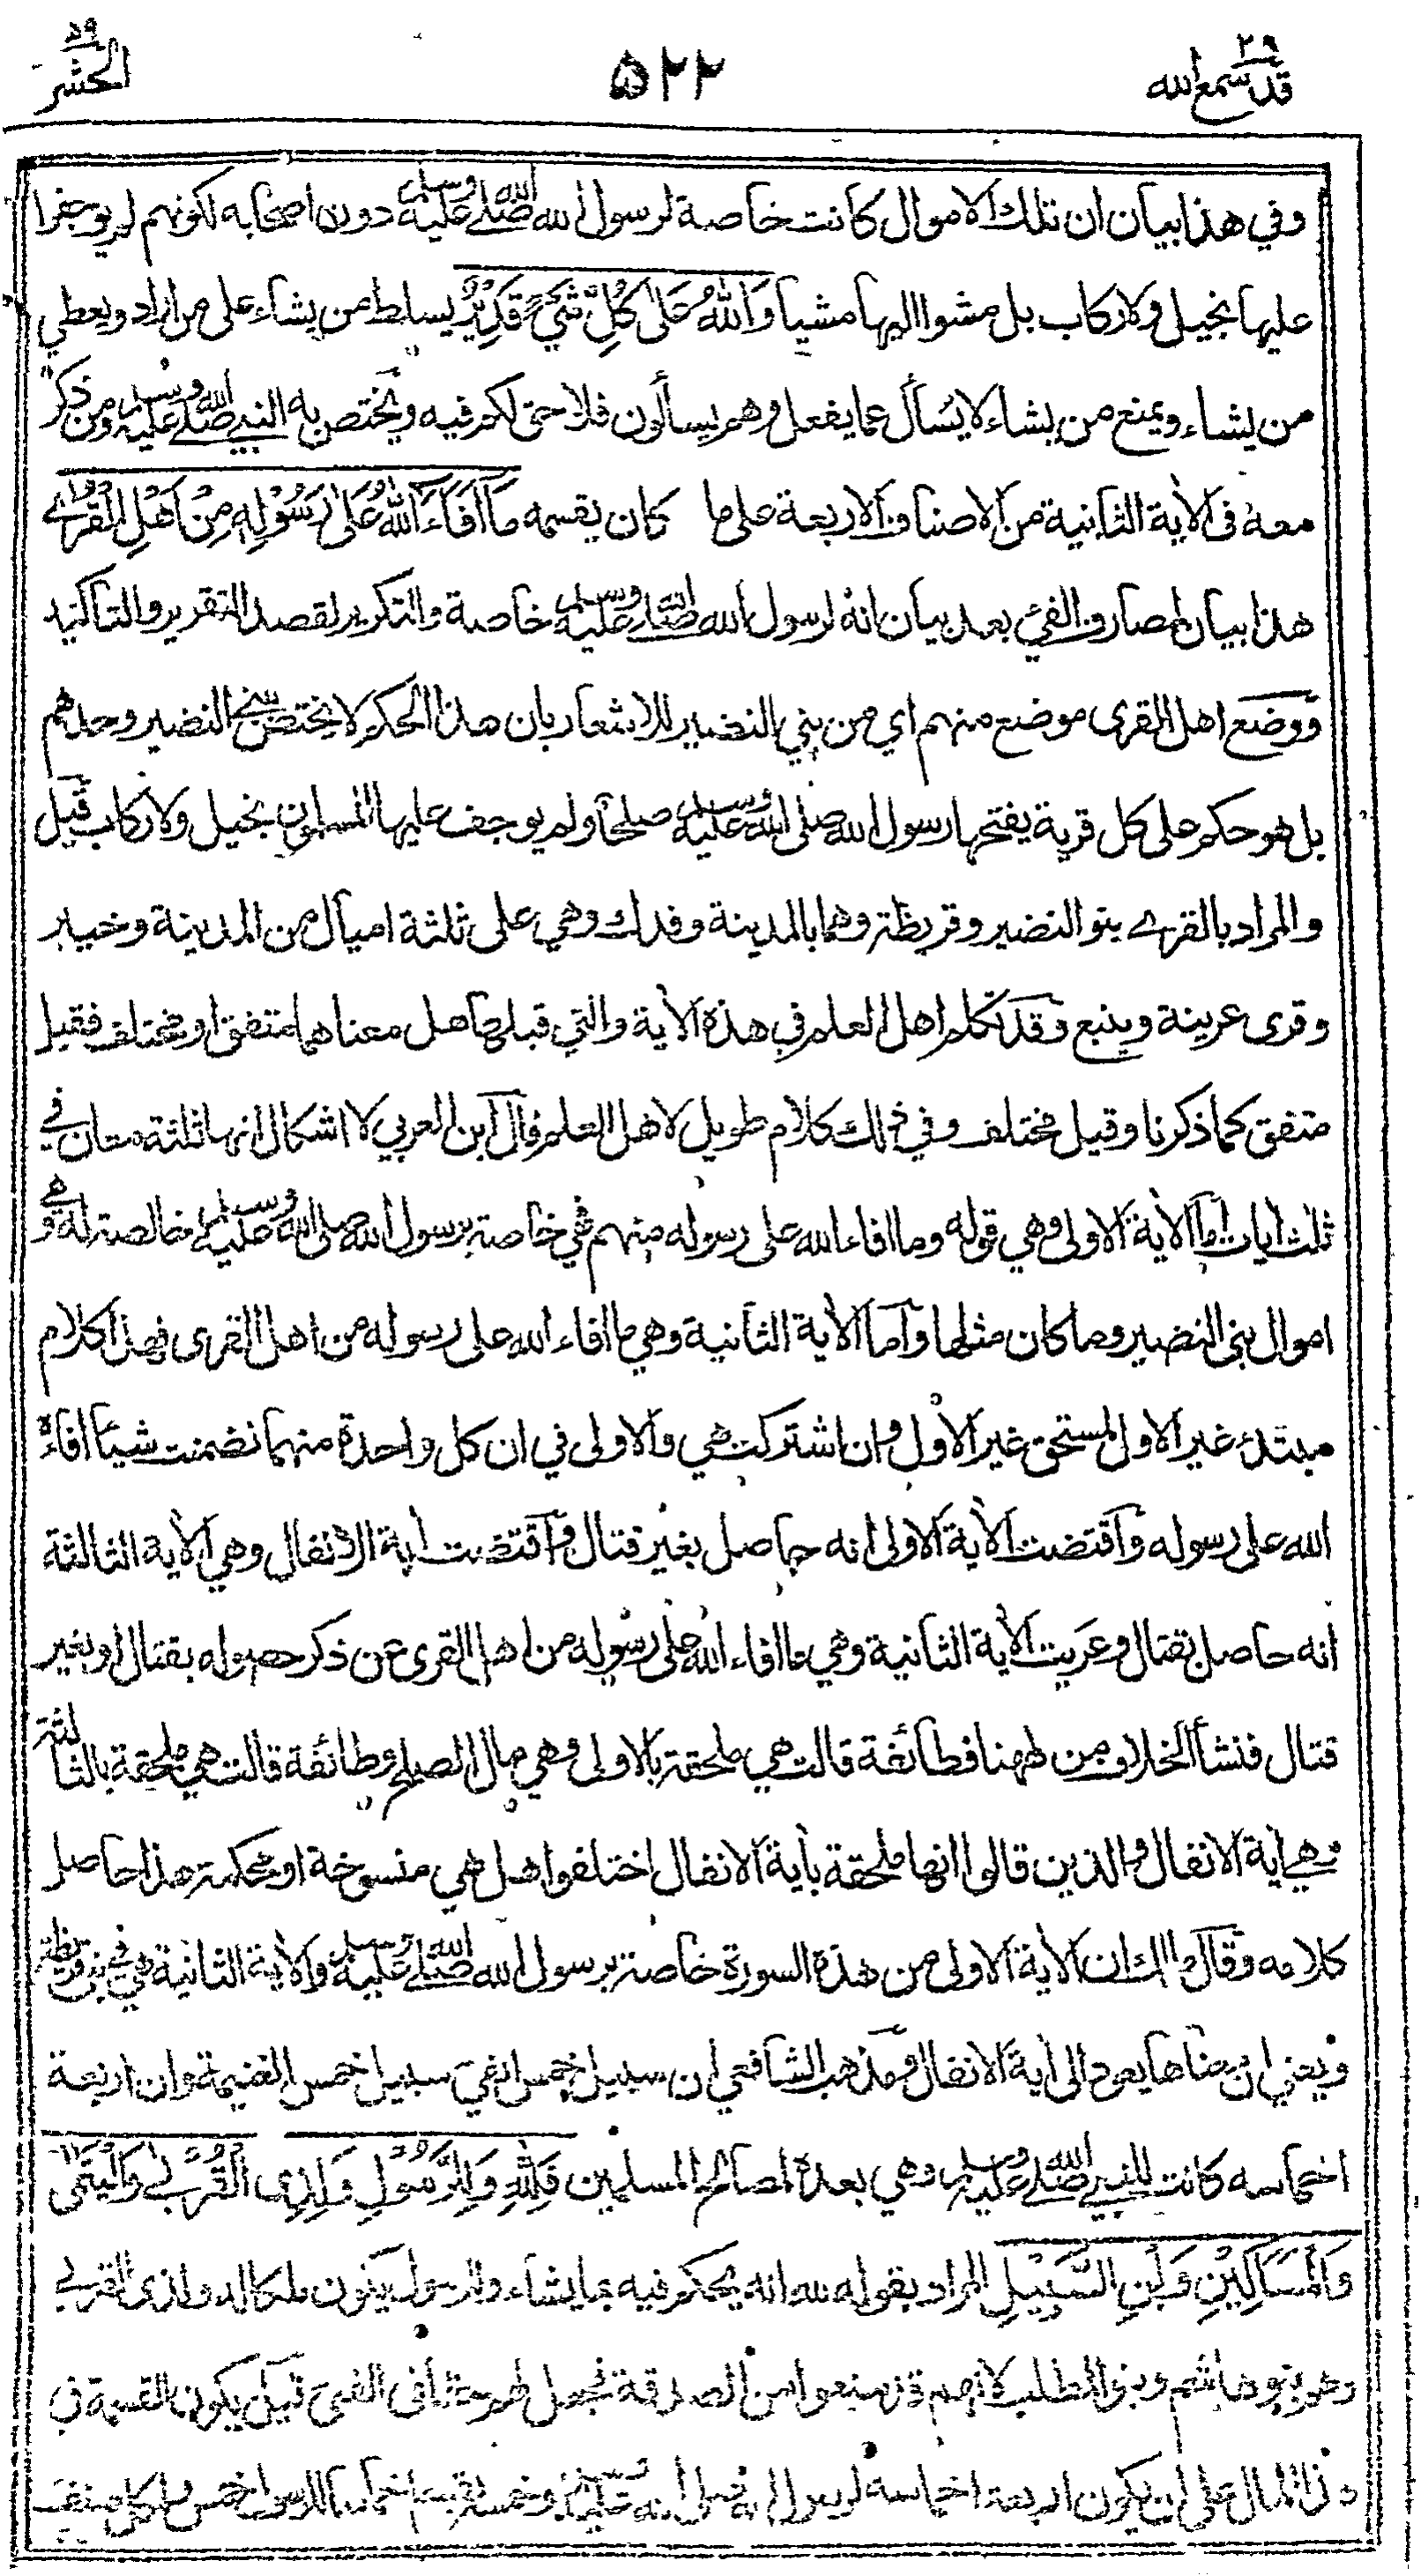 قد سمع الله ٢٨
٥٢٢
الحشر ٥٩
وفي هذا بيان ان تلك الاموال كانت خاصة لرسول الله صلى الله عليه وسلم دون اصحابه لكونهم لم يوجفوا
عليها بخيل ولا ركاب بل مشوا اليها مشيا وَاللّٰهُ عَلٰى كُلِّ شَيْءٍ قَدِيْرٌ يسلط من يشاء على من اراد ويعطي
من يشاء ويمنع من يشاء لا يُسأل عما يفعل وهم يسألون فلا حق لكم فيه ويختص به النبي صلى الله عليه وسلم ومن ذكر
معه فى الاية الثانية من الاصناف الاربعة على ما كان يقسمه مَآ اَفَآءَ اللّٰهُ عَلٰى رَسُوْلِهٖ مِنْ اَهْلِ الْقُرٰى
هذا بيان لمصارف الفيء بعد بيان انه لرسول الله صلى الله عليه وسلم خاصة والتكرير لقصد التقرير والتاكيد
ووضع اهل القرى موضع منهم اي من بني النضير للاشعار بان هذا الحكم لا يختص ببني النضير وحدهم
بل هو حكم على كل قرية يفتحها رسول الله صلى الله عليه وسلم صلحا ولم يوجف عليها المسلمون بخيل ولا ركاب قيل
والمراد بالقرى بنو النضير وقريظة وهما بالمدينة وفدك وهي على ثلثة اميال من المدينة وخيبر
وقرى عرينة وينبع وقد تكلم اهل العلم في هذه الاية والتي قبلها هل معناهما متفق او مختلف فقيل
متفق كما ذكرنا وقيل مختلف وفي ذلك كلام طويل لاهل العلم قال ابن العربي لا اشكال انها ثلثة معان في
ثلث ايات اما الاية الاولى وهي قوله وما افاء الله على رسوله منهم فهي خاصة برسول الله صلى الله عليه وسلم خالصة له وهي
اموال بني النضير وما كان مثلها واما الاية الثانية وهي ما افاء الله على رسوله من اهل القرى فهذا كلام
مبتدء غير الاول لمستحق غير الاول وان اشتركت هي والاولى في ان كل واحدة منهما تضمنت شيئا افاءه
الله على رسوله واقتضت الاية الاولى انه حاصل بغير قتال واقتضت اية الانفال وهي الاية الثالثة
انه حاصل بقتال وعريت الاية الثانية وهي ما افاء الله على رسوله من اهل القرى عن ذكر حصوله بقتال او بغير
قتال فنشأ الخلاف من ههنا فطائفة قالت هي ملحقة بالاولى وهي مال الصلح وطائفة قالت هي ملحقة بالثالثة
وهي أية الانفال والذين قالوا انها ملحقة بأية الانفال اختلفوا هل هي منسوخة او محكمة هذا حاصل
كلامه وقال مالك ان الاية الاولى من هذه السورة خاصة برسول الله صلى الله عليه وسلم والاية الثانية هي في بني قريظة
ويعني ان معناها يعود الى أية الانفال ومذهب الشافعي ان سبيل خمس الفيء سبيل خمس الغنيمة وان اربعة
اخماسه كانت للنبي صلى الله عليه وسلم وهي بعده لمصالح المسلمين فَلِلّٰهِ وَلِلرَّسُوْلِ وَلِذِى الْقُرْبٰى وَالْيَتٰمٰى
وَالْمَسَاكِيْنِ وَابْنِ السَّبِيْلِ المراد بقوله لله انه يحكم فيه بما يشاء وللرسول يكون ملكا له ولذى القربى
وهم بنو هاشم وبنو المطلب لانهم قد منعوا من الصدقة فجعل لهم حقا فى الفيء قيل يكون القسمة في
هذا المال على ان يكون اربعة اخماسه لرسول الله صلى الله عليه وسلم وخمسه يقسم اخماسا للرسول خمس ولكل صنف